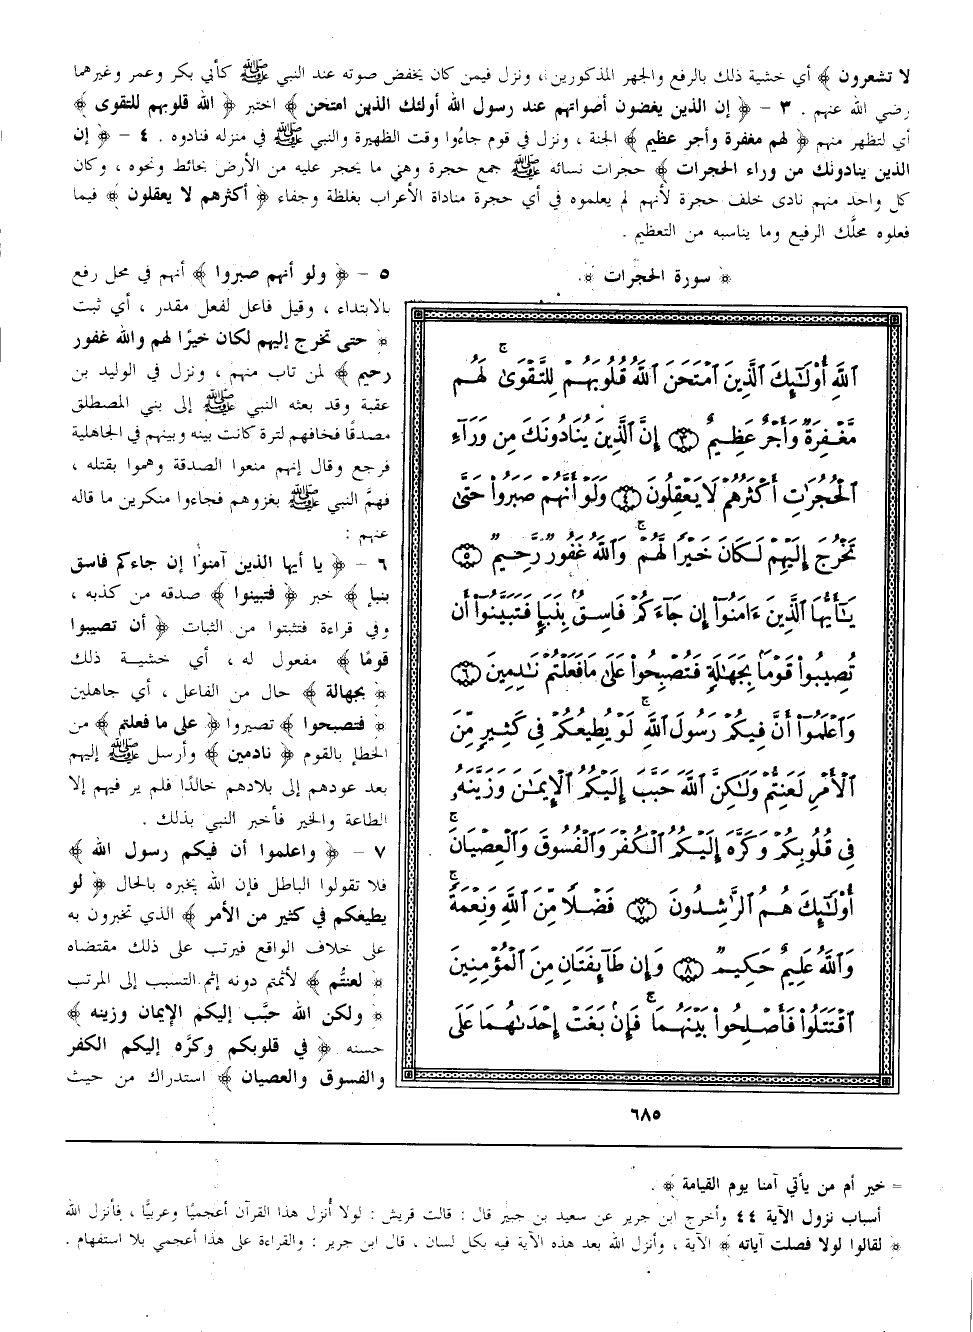 لا تشعرون ﴾ أي خشية ذلك بالرفع والجهر المذكورين، ونزل فيمن كان يخفض صوته عند النبي ﷺ كأبي بكر وعمر وغيرهما
رضي الله عنهم . ٣ - ﴿ إن الذين يغضون أصواتهم عند رسول الله أولئك الذين امتحن ﴾ اختبر ﴿ الله قلوبهم للتقوى ﴾
أي لتظهر منهم ﴿ لهم مغفرة وأجر عظيم ﴾ الجنة ، ونزل في قوم جاءُوا وقت الظهيرة والنبي ﷺ في منزله فنادوه . ٤ - ﴿ إن
الذين ينادونك من وراء الحجرات ﴾ حجرات نسائه ﷺ جمع حجرة وهي ما يحجر عليه من الأرض بحائط ونحوه ، وكان
كل واحد منهم نادى خلف حجرة لأنهم لم يعلموه في أي حجرة مناداة الأعراب بغلظة وجفاء ﴿ أكثرهم لا يعقلون ﴾ فيما
فعلوه محلَّك الرفيع وما يناسبه من التعظيم .
﴿ سورة الحجرات ﴾
اللَّهِ أُوْلَٰٓئِكَ ٱلَّذِينَ ٱمْتَحَنَ ٱللَّهُ قُلُوبَهُمْ لِلتَّقْوَىٰ ۚ لَهُم
مَّغْفِرَةٌ وَأَجْرٌ عَظِيمٌ ﴿٣﴾ إِنَّ ٱلَّذِينَ يُنَادُونَكَ مِن وَرَآءِ
ٱلْحُجُرَٰتِ أَكْثَرُهُمْ لَا يَعْقِلُونَ ﴿٤﴾ وَلَوْ أَنَّهُمْ صَبَرُواْ حَتَّىٰ
تَخْرُجَ إِلَيْهِمْ لَكَانَ خَيْرًا لَّهُمْ ۚ وَٱللَّهُ غَفُورٌ رَّحِيمٌ ﴿٥﴾
يَٰٓأَيُّهَا ٱلَّذِينَ ءَامَنُوٓاْ إِن جَآءَكُمْ فَاسِقٌۢ بِنَبَإٍ فَتَبَيَّنُوٓاْ أَن
تُصِيبُواْ قَوْمًۢا بِجَهَٰلَةٍ فَتُصْبِحُواْ عَلَىٰ مَا فَعَلْتُمْ نَٰدِمِينَ ﴿٦﴾
وَٱعْلَمُوٓاْ أَنَّ فِيكُمْ رَسُولَ ٱللَّهِ ۚ لَوْ يُطِيعُكُمْ فِي كَثِيرٍ مِّنَ
ٱلْأَمْرِ لَعَنِتُّمْ وَلَٰكِنَّ ٱللَّهَ حَبَّبَ إِلَيْكُمُ ٱلْإِيمَٰنَ وَزَيَّنَهُۥ
فِي قُلُوبِكُمْ وَكَرَّهَ إِلَيْكُمُ ٱلْكُفْرَ وَٱلْفُسُوقَ وَٱلْعِصْيَانَ ۚ
أُوْلَٰٓئِكَ هُمُ ٱلرَّٰشِدُونَ ﴿٧﴾ فَضْلًا مِّنَ ٱللَّهِ وَنِعْمَةً ۚ
وَٱللَّهُ عَلِيمٌ حَكِيمٌ ﴿٨﴾ وَإِن طَآئِفَتَانِ مِنَ ٱلْمُؤْمِنِينَ
ٱقْتَتَلُواْ فَأَصْلِحُواْ بَيْنَهُمَا ۖ فَإِنۢ بَغَتْ إِحْدَىٰهُمَا عَلَى
٥ - ﴿ ولو أنهم صبروا ﴾ أنهم في محل رفع
بالابتداء ، وقيل فاعل لفعل مقدر ، أي ثبت
﴿ حتى تخرج إليهم لكان خيرًا لهم والله غفور
رحيم ﴾ لمن تاب منهم ، ونزل في الوليد بن
عقبة وقد بعثه النبي ﷺ إلى بني المصطلق
مصدقًا فخافهم لترة كانت بينه وبينهم في الجاهلية
فرجع وقال إنهم منعوا الصدقة وهموا بقتله ،
فهمَّ النبي ﷺ بغزوهم فجاءوا منكرين ما قاله
عنهم :
٦ - ﴿ يا أيها الذين آمنوا إن جاءكم فاسق
بنبإ ﴾ خبر ﴿ فتبينوا ﴾ صدقه من كذبه ،
وفي قراءة فتثبتوا من الثبات ﴿ أن تصيبوا
قومًا ﴾ مفعول له ، أي خشية ذلك
﴿ بجهالة ﴾ حال من الفاعل ، أي جاهلين
﴿ فتصبحوا ﴾ تصيروا ﴿ على ما فعلتم ﴾ من
الخطإ بالقوم ﴿ نادمين ﴾ وأرسل ﷺ إليهم
بعد عودهم إلى بلادهم خالدًا فلم ير فيهم إلا
الطاعة والخير فأخبر النبي بذلك .
٧ - ﴿ واعلموا أن فيكم رسول الله ﴾
فلا تقولوا الباطل فإن الله يخبره بالحال ﴿ لو
يطيعكم في كثير من الأمر ﴾ الذي تخبرون به
على خلاف الواقع فيرتب على ذلك مقتضاه
﴿ لعنتُّم ﴾ لأثمتم دونه إثم التسبب إلى المرتب
﴿ ولكن الله حبَّب إليكم الإيمان وزينه ﴾
حسنه ﴿ في قلوبكم وكرَّه إليكم الكفر
والفسوق والعصيان ﴾ استدراك من حيث
٦٨٥
= خير أم من يأتي آمنا يوم القيامة ﴾ .
أسباب نزول الآية ٤٤ وأخرج ابن جرير عن سعيد بن جبير قال : قالت قريش : لولا أُنزل هذا القرآن أعجميًا وعربيًا ، فأنزل الله
﴿ لقالوا لولا فصلت آياته ﴾ الآية ، وأنزل الله بعد هذه الآية فيه بكل لسان . قال ابن جرير : والقراءة على هذا أعجمي بلا استفهام .